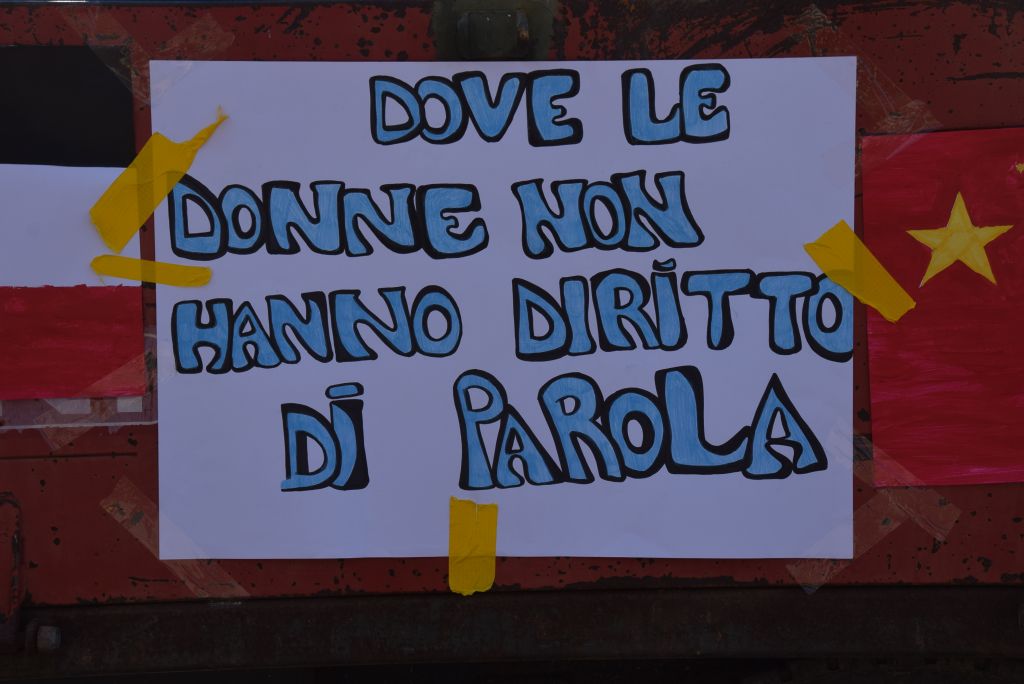 DOVE LE
DONNE NON
HANNO DIRITTO
DI PAROLA